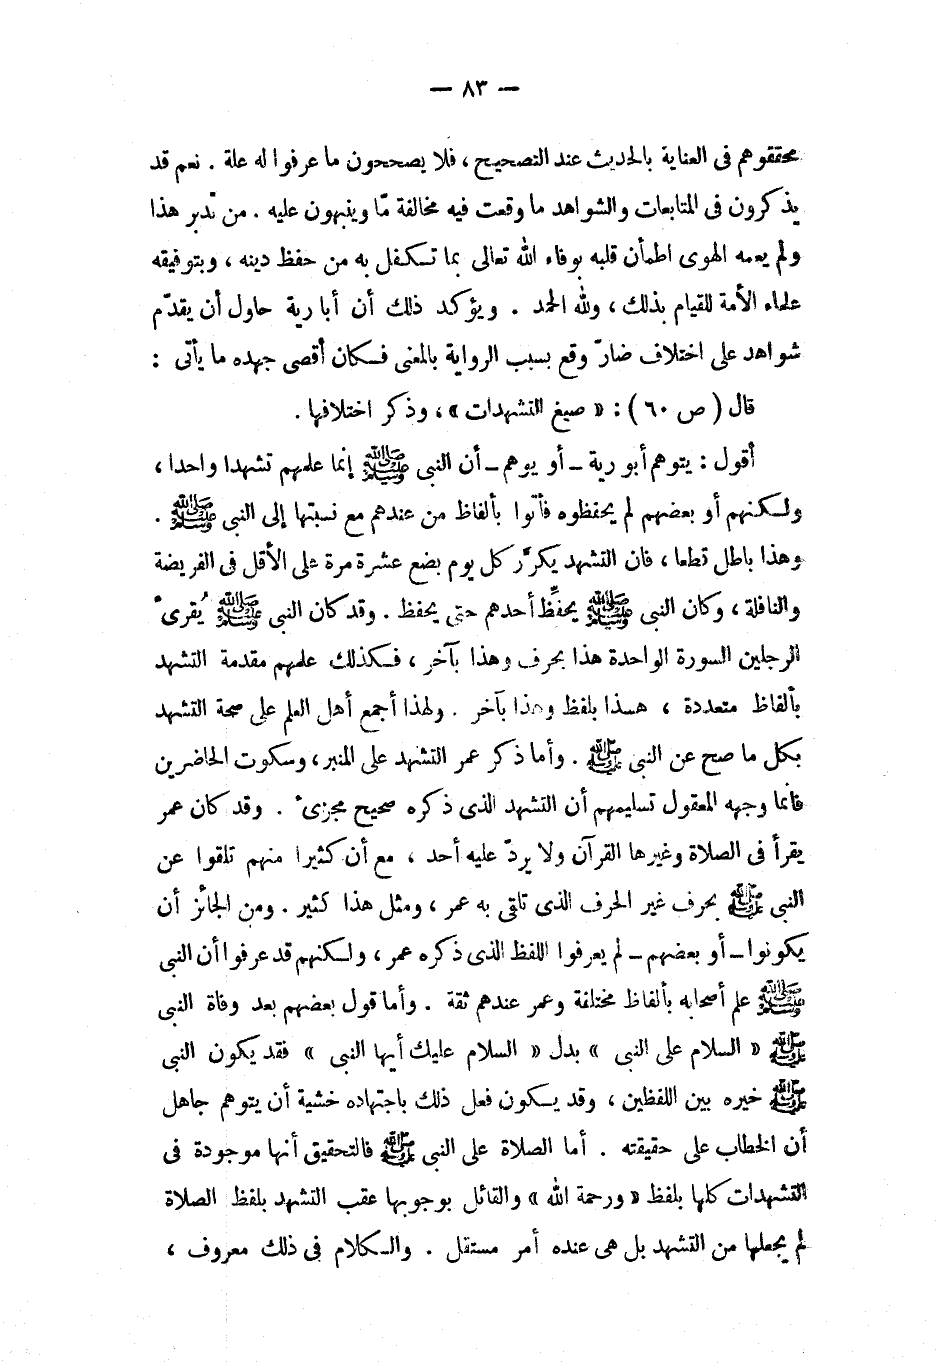 — ٨٣ —
محققوهم فى العناية بالحديث عند التصحيح ، فلا يصححون ما عرفوا له علة . نعم قد
يذكرون فى المتابعات والشواهد ما وقعت فيه مخالفة مّا وينبهون عليه . من تدبر هذا
ولم يعمه الهوى اطمأن قلبه بوفاء الله تعالى بما تكفل به من حفظ دينه ، وبتوفيقه
علماء الأمة للقيام بذلك ، ولله الحمد . ويؤكد ذلك أن أبا رية حاول أن يقدّم
شواهد على اختلاف ضارّ وقع بسبب الرواية بالمعنى فكان أقصى جهده ما يأتى :
قال ( ص ٦٠ ) : « صيغ التشهدات » ، وذكر اختلافها .
أقول : يتوهم أبو رية – أو يوهم – أن النبى ﷺ إنما علمهم تشهدا واحدا ،
ولكنهم أو بعضهم لم يحفظوه فأتوا بألفاظ من عندهم مع نسبتها إلى النبى ﷺ .
وهذا باطل قطعا ، فان التشهد يكرَّر كل يوم بضع عشرة مرة على الأقل فى الفريضة
والنافلة ، وكان النبى ﷺ يحفِّظ أحدهم حتى يحفظ . وقد كان النبى ﷺ يُقرىء
الرجلين السورة الواحدة هذا بحرف وهذا بآخر ، فكذلك علمهم مقدمة التشهد
بألفاظ متعددة ، هذا بلفظ وهذا بآخر . ولهذا أجمع أهل العلم على صحة التشهد
بكل ما صح عن النبى ﷺ . وأما ذكر عمر التشهد على المنبر ، وسكوت الحاضرين
فانما وجهه المعقول تسليمهم أن التشهد الذى ذكره صحيح مجزىء . وقد كان عمر
يقرأ فى الصلاة وغيرها القرآن ولا يردّ عليه أحد ، مع أن كثيرا منهم تلقوا عن
النبى ﷺ بحرف غير الحرف الذى تلقى به عمر ، ومثل هذا كثير . ومن الجائز أن
يكونوا – أو بعضهم – لم يعرفوا اللفظ الذى ذكره عمر ، ولكنهم قد عرفوا أن النبى
ﷺ علم أصحابه بألفاظ مختلفة وعمر عندهم ثقة . وأما قول بعضهم بعد وفاة النبى
ﷺ « السلام على النبى » بدل « السلام عليك أيها النبى » فقد يكون النبى
ﷺ خيره بين اللفظين ، وقد يكون فعل ذلك باجتهاده خشية أن يتوهم جاهل
أن الخطاب على حقيقته . أما الصلاة على النبى ﷺ فالتحقيق أنها موجودة فى
التشهدات كلها بلفظ « ورحمة الله » والقائل بوجوبها عقب التشهد بلفظ الصلاة
لم يجعلها من التشهد بل هى عنده أمر مستقل . والكلام فى ذلك معروف ،